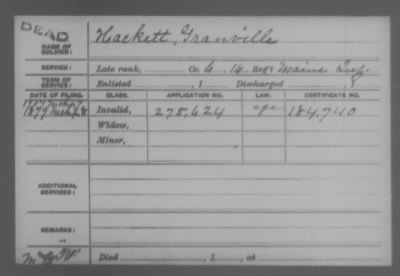 DEAD
NAME OF SOLDIER:
Hackett, Granville
SERVICE:
Late rank, Co. 6, 16 Reg't Maine Inf.
TERM OF SERVICE:
Enlisted , 1 Discharged , 1
DATE OF FILING. CLASS. APPLICATION NO. LAW. CERTIFICATE NO.
1879 Invalid, 275,624 184,740
Widow,
Minor,
ADDITIONAL SERVICES:
REMARKS:
Died , 1 , at